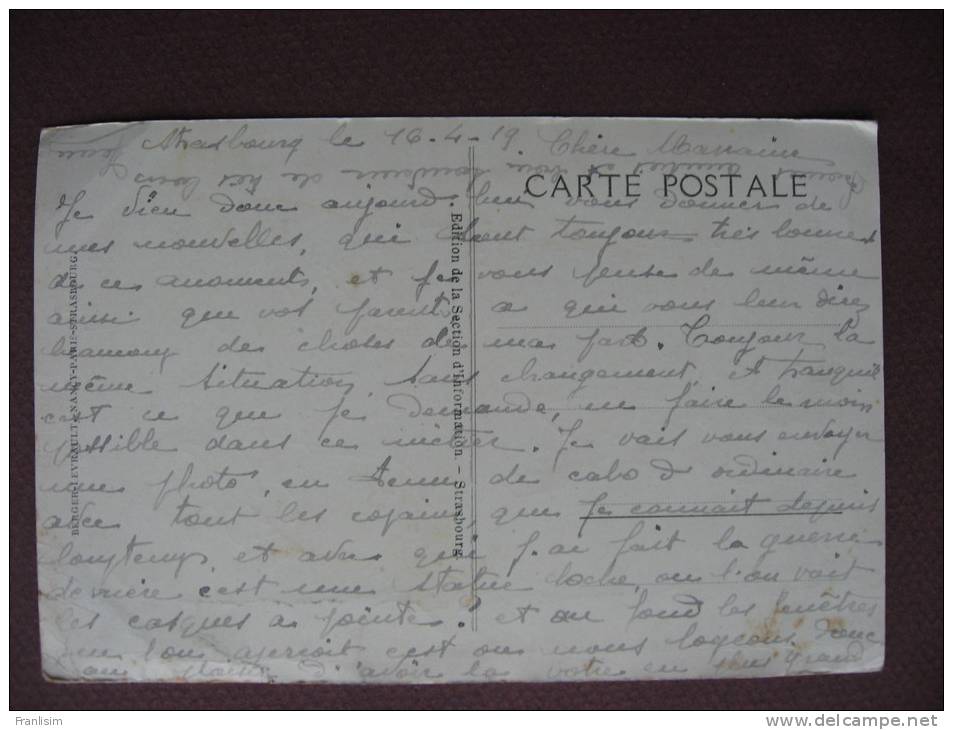 Strasbourg le 16-4-19. Chère Marraine
CARTE POSTALE
Je vien donc aujourd'hui vous donner de
mes nouvelles, qui sont toujour très bonnes
de ce moments, et je vous pense de même
ainsi que vos parents a qui vous leur direz
beaucoup des choses de ma part. Toujour la
même situation sans changement, et tranquil
c'est ce que je demande, en faire le moin
possible dans ce métier. Je vais vous envoyer
une photo, en tenue de cabo d ordinaire
avec tout les copains, que je connait depuis
longtemp, et avec qui j'ai fait la guerre
derrière c'est une statue boche, ou l'on voit
les casques a pointe? et au fond les fenêtres
que l'on aperçoit c'est ou nous logeons. Donc
au plaisir d'avoir la votre en plus grand
BERGER-LEVRAULT, NANCY-PARIS-STRASBOURG.
Edition de la Section d'Information. - Strasbourg.
Franlisim
www.delcampe.net